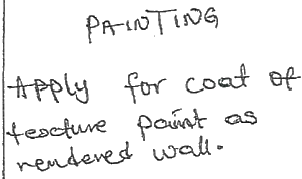 PAINTING
Apply for coat of
texture paint as
rendered wall.